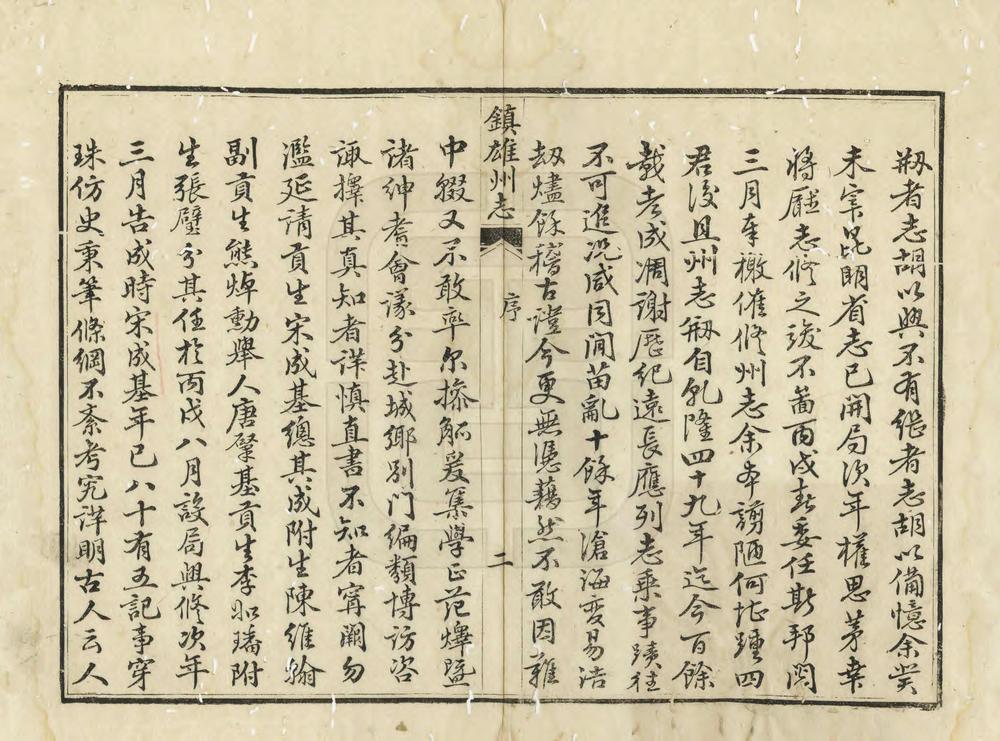 剏者志胡以興不有繼者志胡以備憶余癸
未宰昆明省志已開局次年權思茅彙
將廳志修之竣不啚丙戌春委任斯邦閱
三月奉檄催修州志余本謭陋何堪踵四
君後且州志剏自乹隆四十九年迄今百餘
載老成凋謝歷紀遠長應列志乘事蹟往
不可追况咸同間苗亂十餘年滄海變易浩
刼燼餘稽古證今更無憑藉然不敢因難
鎮雄州志
序
二
中輟又不敢率尔操觚爰集學正范爗暨
諸紳耆會議分赴城鄉别門編纇博訪咨
諏擇其真知者詳慎直書不知者寧闕勿
濫延請貢生宋成基總其成附生陳維翰
副貢生熊焯勳舉人唐肇基貢生李昭璠附
生張璧分其任於丙戌八月設局興修次年
三月告成時宋成基年已八十有五記事穿
珠仿史秉筆條綱不紊考究詳明古人云人